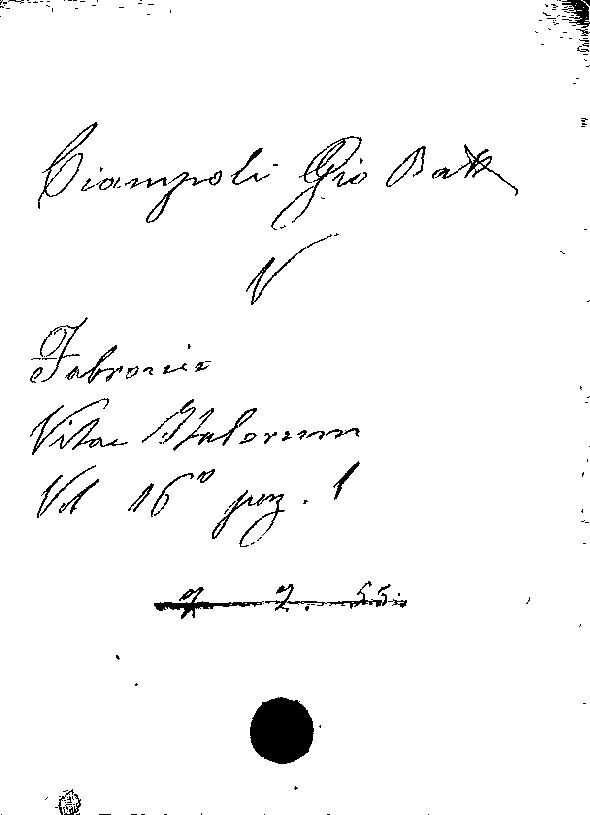 Ciampoli Gio Batt
V
Fabronii
Vitae Italorum
Vol 16° pag. 1
2. 55.